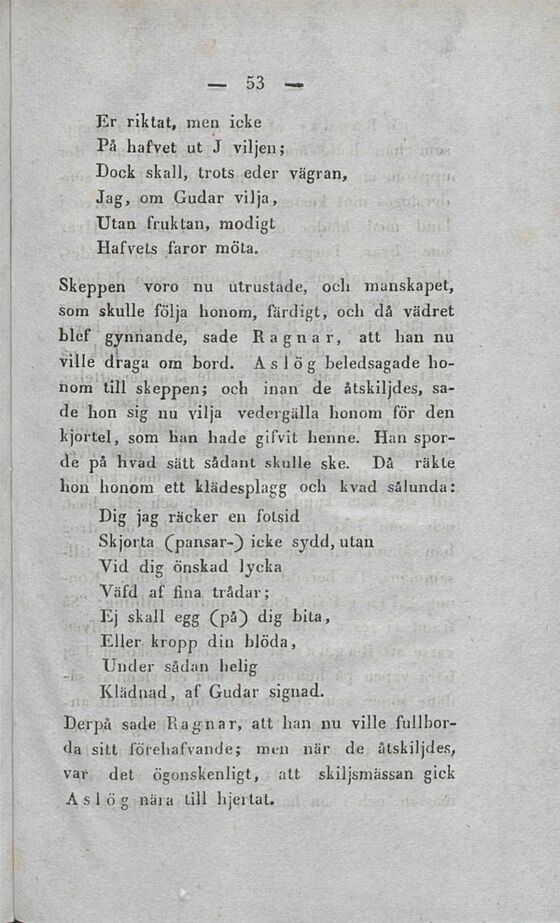 — 53 —
Er riktat, men icke
På hafvet ut J viljen;
Dock skall, trots eder vägran,
Jag, om Gudar vilja,
Utan fruktan, modigt
Hafvets faror möta.
Skeppen voro nu utrustade, och manskapet,
som skulle följa honom, färdigt, och då vädret
blef gynnande, sade Ragnar, att han nu
ville draga om bord. Aslög beledsagade ho-
nom till skeppen; och inan de åtskiljdes, sa-
de hon sig nu vilja vedergälla honom för den
kjortel, som han hade gifvit henne. Han spor-
de på hvad sätt sådant skulle ske. Då räkte
hon honom ett klädesplagg och kvad sålunda:
Dig jag räcker en fotsid
Skjorta (pansar-) icke sydd, utan
Vid dig önskad lycka
Väfd af fina trådar;
Ej skall egg (på) dig bita,
Eller kropp din blöda,
Under sådan helig
Klädnad, af Gudar signad.
Derpå sade Ragnar, att han nu ville fullbor-
da sitt förehafvande; men när de åtskiljdes,
var det ögonskenligt, att skiljsmässan gick
Aslög nära till hjertat.